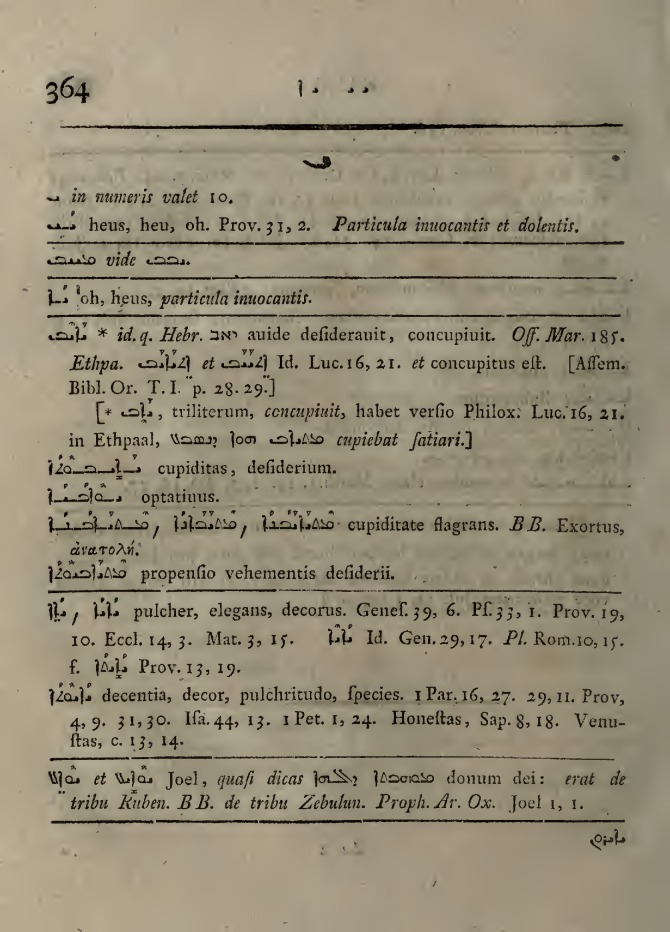 364
ܝ
ܝ in numeris valet 10.
heus, heu, oh. Prov. 31, 2. Particula inuocantis et dolentis.
vide
oh, heus, particula inuocantis.
* id. q. Hebr. יאב auide deſiderauit, concupiuit. Off. Mar. 185.
Ethpa. et Id. Luc. 16, 21. et concupitus eſt. [Aſſem.
Bibl. Or. T. I. p. 28. 29.]
[* , triliterum, concupiuit, habet verſio Philox. Luc. 16, 21.
in Ethpaal, cupiebat ſatiari.]
cupiditas, deſiderium.
optatiuus.
cupiditate flagrans. BB. Exortus,
ἀνατολή.
propenſio vehementis deſiderii.
pulcher, elegans, decorus. Geneſ. 39, 6. Pſ. 33, 1. Prov. 19,
10. Eccl. 14, 3. Mat. 3, 15. Id. Gen. 29, 17. Pl. Rom. 10, 15.
f. Prov. 13, 19.
decentia, decor, pulchritudo, ſpecies. 1 Par. 16, 27. 29, 11. Prov,
4, 9. 31, 30. Iſa. 44, 13. 1 Pet. 1, 24. Honeſtas, Sap. 8, 18. Venu-
ſtas, c. 13, 14.
et Joel, quaſi dicas donum dei: erat de
tribu Ruben. BB. de tribu Zebulun. Proph. Ar. Ox. Joel 1, 1.